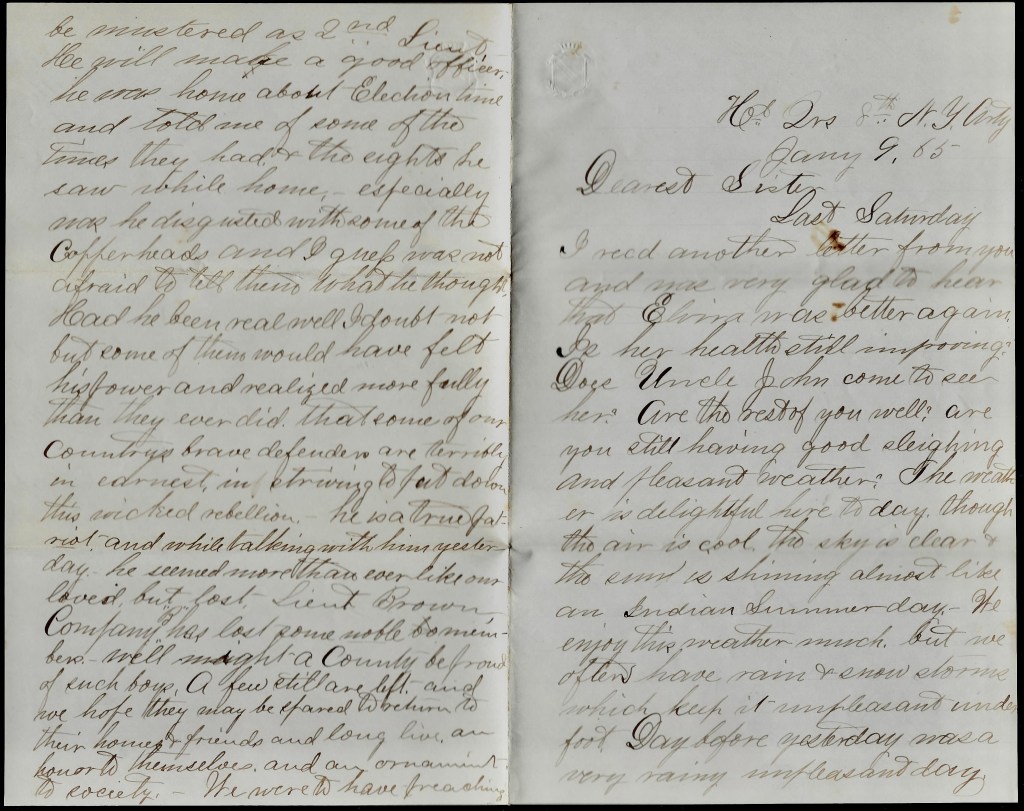 be mustered as 2nd Lieut,
He will make a good officer,
he was home about Election time
and told me of some of the
times they had & the sights he
saw while home, - especially
was he disgusted with some of the
Copperheads and I guess was not
afraid to tell them what he thought,
Had he been real well I doubt not
but some of them would have felt
his power and realized more fully
than they ever did, that some of our
Countrys brave defenders are terribly
in earnest, in striving to put down
this wicked rebellion. - he is a true pat-
riot, and while talking with him yester-
day - he seemed more than ever like our
loved, but lost, Lieut Brown
Company has lost some noble mem-
bers. - well might a County be proud
of such boys, A few still are left, and
we hope they may be spared to return to
their homes & friends and long live, an
honor to themselves, and an ornament
to society. - We were to have preaching
Hd Qrs 8th N. Y. Arty
Jany 9, 65
Dearest Sister
Last Saturday
I recd another letter from you
and was very glad to hear
that Elvira was better again,
Is her health still improving?
Does Uncle John come to see
her? Are the rest of you well? are
you still having good sleighing
and pleasant weather? The weath-
er is delightful here to day, though
the air is cool, the sky is clear &
the sun is shining almost like
an Indian Summer day, - We
enjoy this weather much, but we
often have rain & snow storms
which keep it unpleasant under
foot. Day before yesterday was a
very rainy unpleasant day,